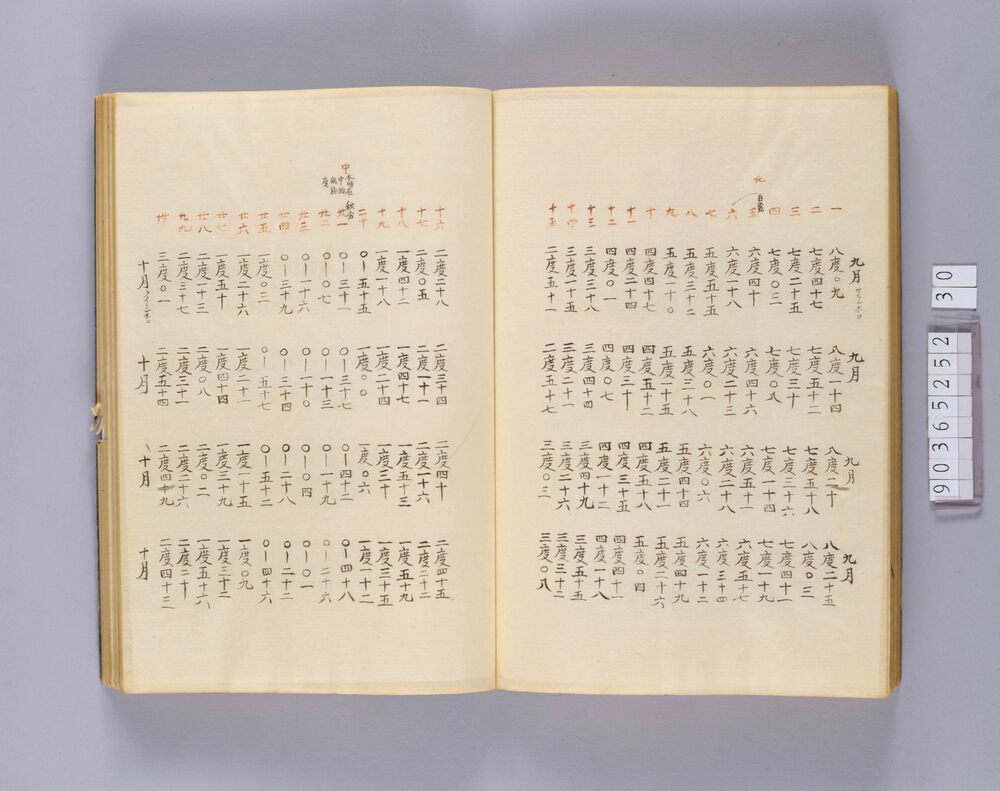 北
白露
九月 九月 九月 九月
一 八度〇九 八度一十四 八度二十 八度二十五
二 七度四十七 七度五十二 七度五十八 八度〇三
三 七度二十五 七度三十 七度三十六 七度四十一
四 七度〇三 七度〇八 七度一十四 七度一十九
五 六度四十 六度四十六 六度五十一 六度五十七
六 六度一十八 六度二十三 六度二十八 六度三十四
七 五度五十五 六度〇一 六度〇六 六度一十二
八 五度三十二 五度三十八 五度四十四 五度四十九
九 五度一十〇 五度一十五 五度二十一 五度二十六
十 四度四十七 四度五十二 四度五十八 五度〇四
十一 四度二十四 四度三十 四度三十五 四度四十一
十二 四度〇一 四度〇七 四度一十二 四度一十八
十三 三度三十八 三度四十四 三度四十九 三度五十五
十四 三度一十五 三度二十一 三度二十六 三度三十二
十五 二度五十一 二度五十七 三度〇三 三度〇八
中
本時在
中線
無距
度
秋分
十六 二度二十八 二度三十四 二度四十 二度四十五
十七 二度〇五 二度一十一 二度一十六 二度二十二
十八 一度四十二 一度四十七 一度五十三 一度五十九
十九 一度一十八 一度二十四 一度三十 一度三十五
二十 〇｜五十五 一度〇〇 一度〇六 一度一十二
廿一 〇｜三十一 〇｜三十七 〇｜四十二 〇｜四十八
廿二 〇｜〇七 〇｜一十三 〇｜一十九 〇｜二十六
廿三 〇｜一十六 〇｜一十〇 〇｜〇四 〇｜〇一
廿四 〇｜三十九 〇｜三十四 〇｜二十八 〇｜二十二
廿五 一度〇三 〇｜五十七 〇｜五十二 〇｜四十六
廿六 一度二十六 一度二十一 一度一十五 一度〇九
廿七 一度五十 一度四十四 一度三十九 一度三十二
廿八 二度一十三 二度〇八 二度〇二 一度五十六
廿九 二度三十七 二度三十一 二度二十六 二度二十
卅 三度〇一 二度五十四 二度四十九 二度四十三
十月 十月 十月 十月
30
90365252